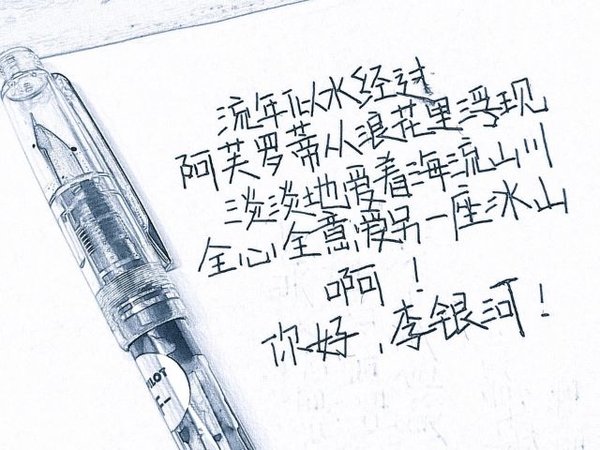 流年似水经过
阿芙罗蒂从浪花里浮现
淡淡地爱着海流山川
全心全意爱另一座冰山
啊！
你好，李银河！